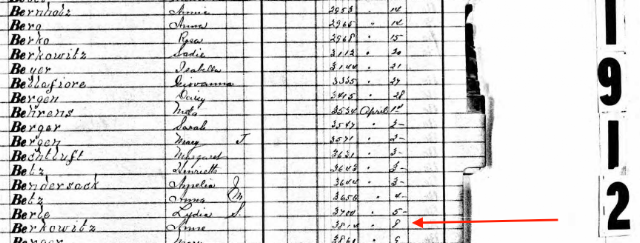 Bernholz Annie 2953 " 14
Berg Anna 2965 " 14
Berko Rose 2968 " 15
Berkowitz Sadie 3112 " 20
Beyer Isabella 3144 " 21
Bellefiore Giovanna 3325 " 27
Bergen Daisy 3415 " 28
Behrens Meta 3534 April 1st
Berger Sarah 3547 " 2-
Bergen Mary J. 3571 " 2-
Bechtluft Margaret 3631 " 3-
Betz Henrietta 3643 " 3-
Bendersack Amelia J 3644 " 3-
Betz Anna M 3656 " 4-
Berle Lydia S. 3704 " 5-
Berkowitz Anne 3814 " 8
Berger Mary
1912